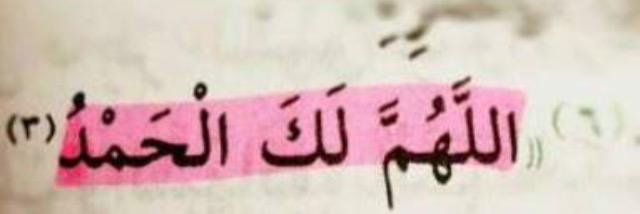 (٦) ((اللَّهُمَّ لَكَ الْحَمْدُ (٣)